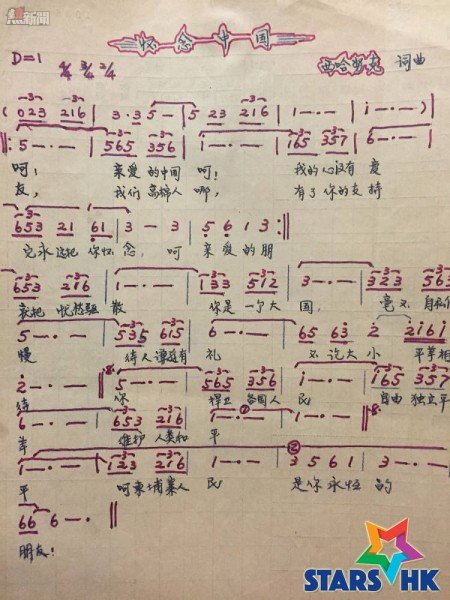 点新聞
怀念中国
D=1 4/4 3/4 2/4
西哈努克 词曲
( 023 216 | 3·35— | 5 23 216 | 1—·— | i—·— )
5—·— | 565 356 | 1—·— | 165 357 | 6—·—
呵! 亲爱的中国 呵! 我的心没有 变
友, 我们高棉人 哪, 有了你的支持
653 21 61 | 3 — 3 | 5 6 1 3 :||
它永远把 你怀 念, 呵 亲爱的朋
653 216 | 1—·— | 133 512 | 3—·— | 323 563
就把 忧愁驱 散 你是一个大 国, 毫不 自私
5—·— | 535 615 | 6—·— | 65 63 2 2161
慢 待人谦逊有 礼 不论大小 平等相
2—·— || 5—·— | 565 356 | i—·— | 165 357
待 你 捍卫 各国人 民 自由 独立 平
6—·— | 653 216 | 1—·— | 1—·—
等 维护 人类和 平
1—·— | 123 216 | 1—·— | 3 5 6 1 | 3—·—
平 呵柬埔寨人 民 是你永恒 的
66 6—·— ||
朋友!
STARS HK